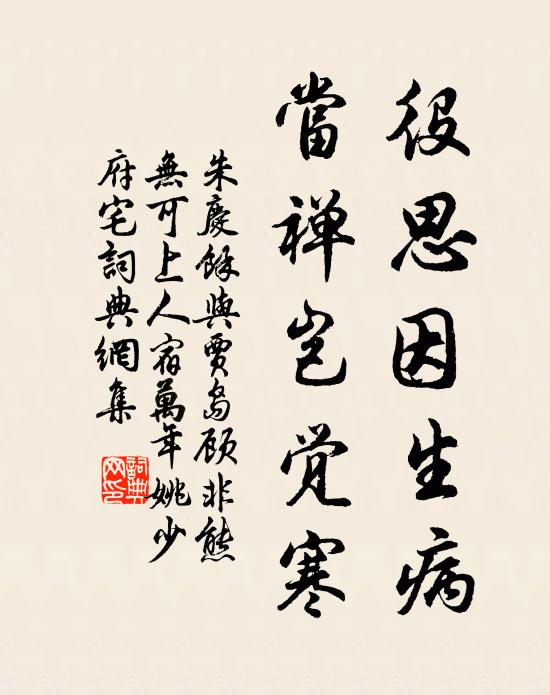 役思因生病
當禅岂觉寒
朱慶餘與賈島顧非熊
無可上人宿萬年姚少
府宅詞典網集
詞典
网印